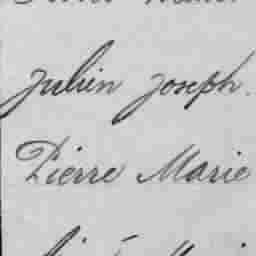 Julien Joseph.
Pierre Marie